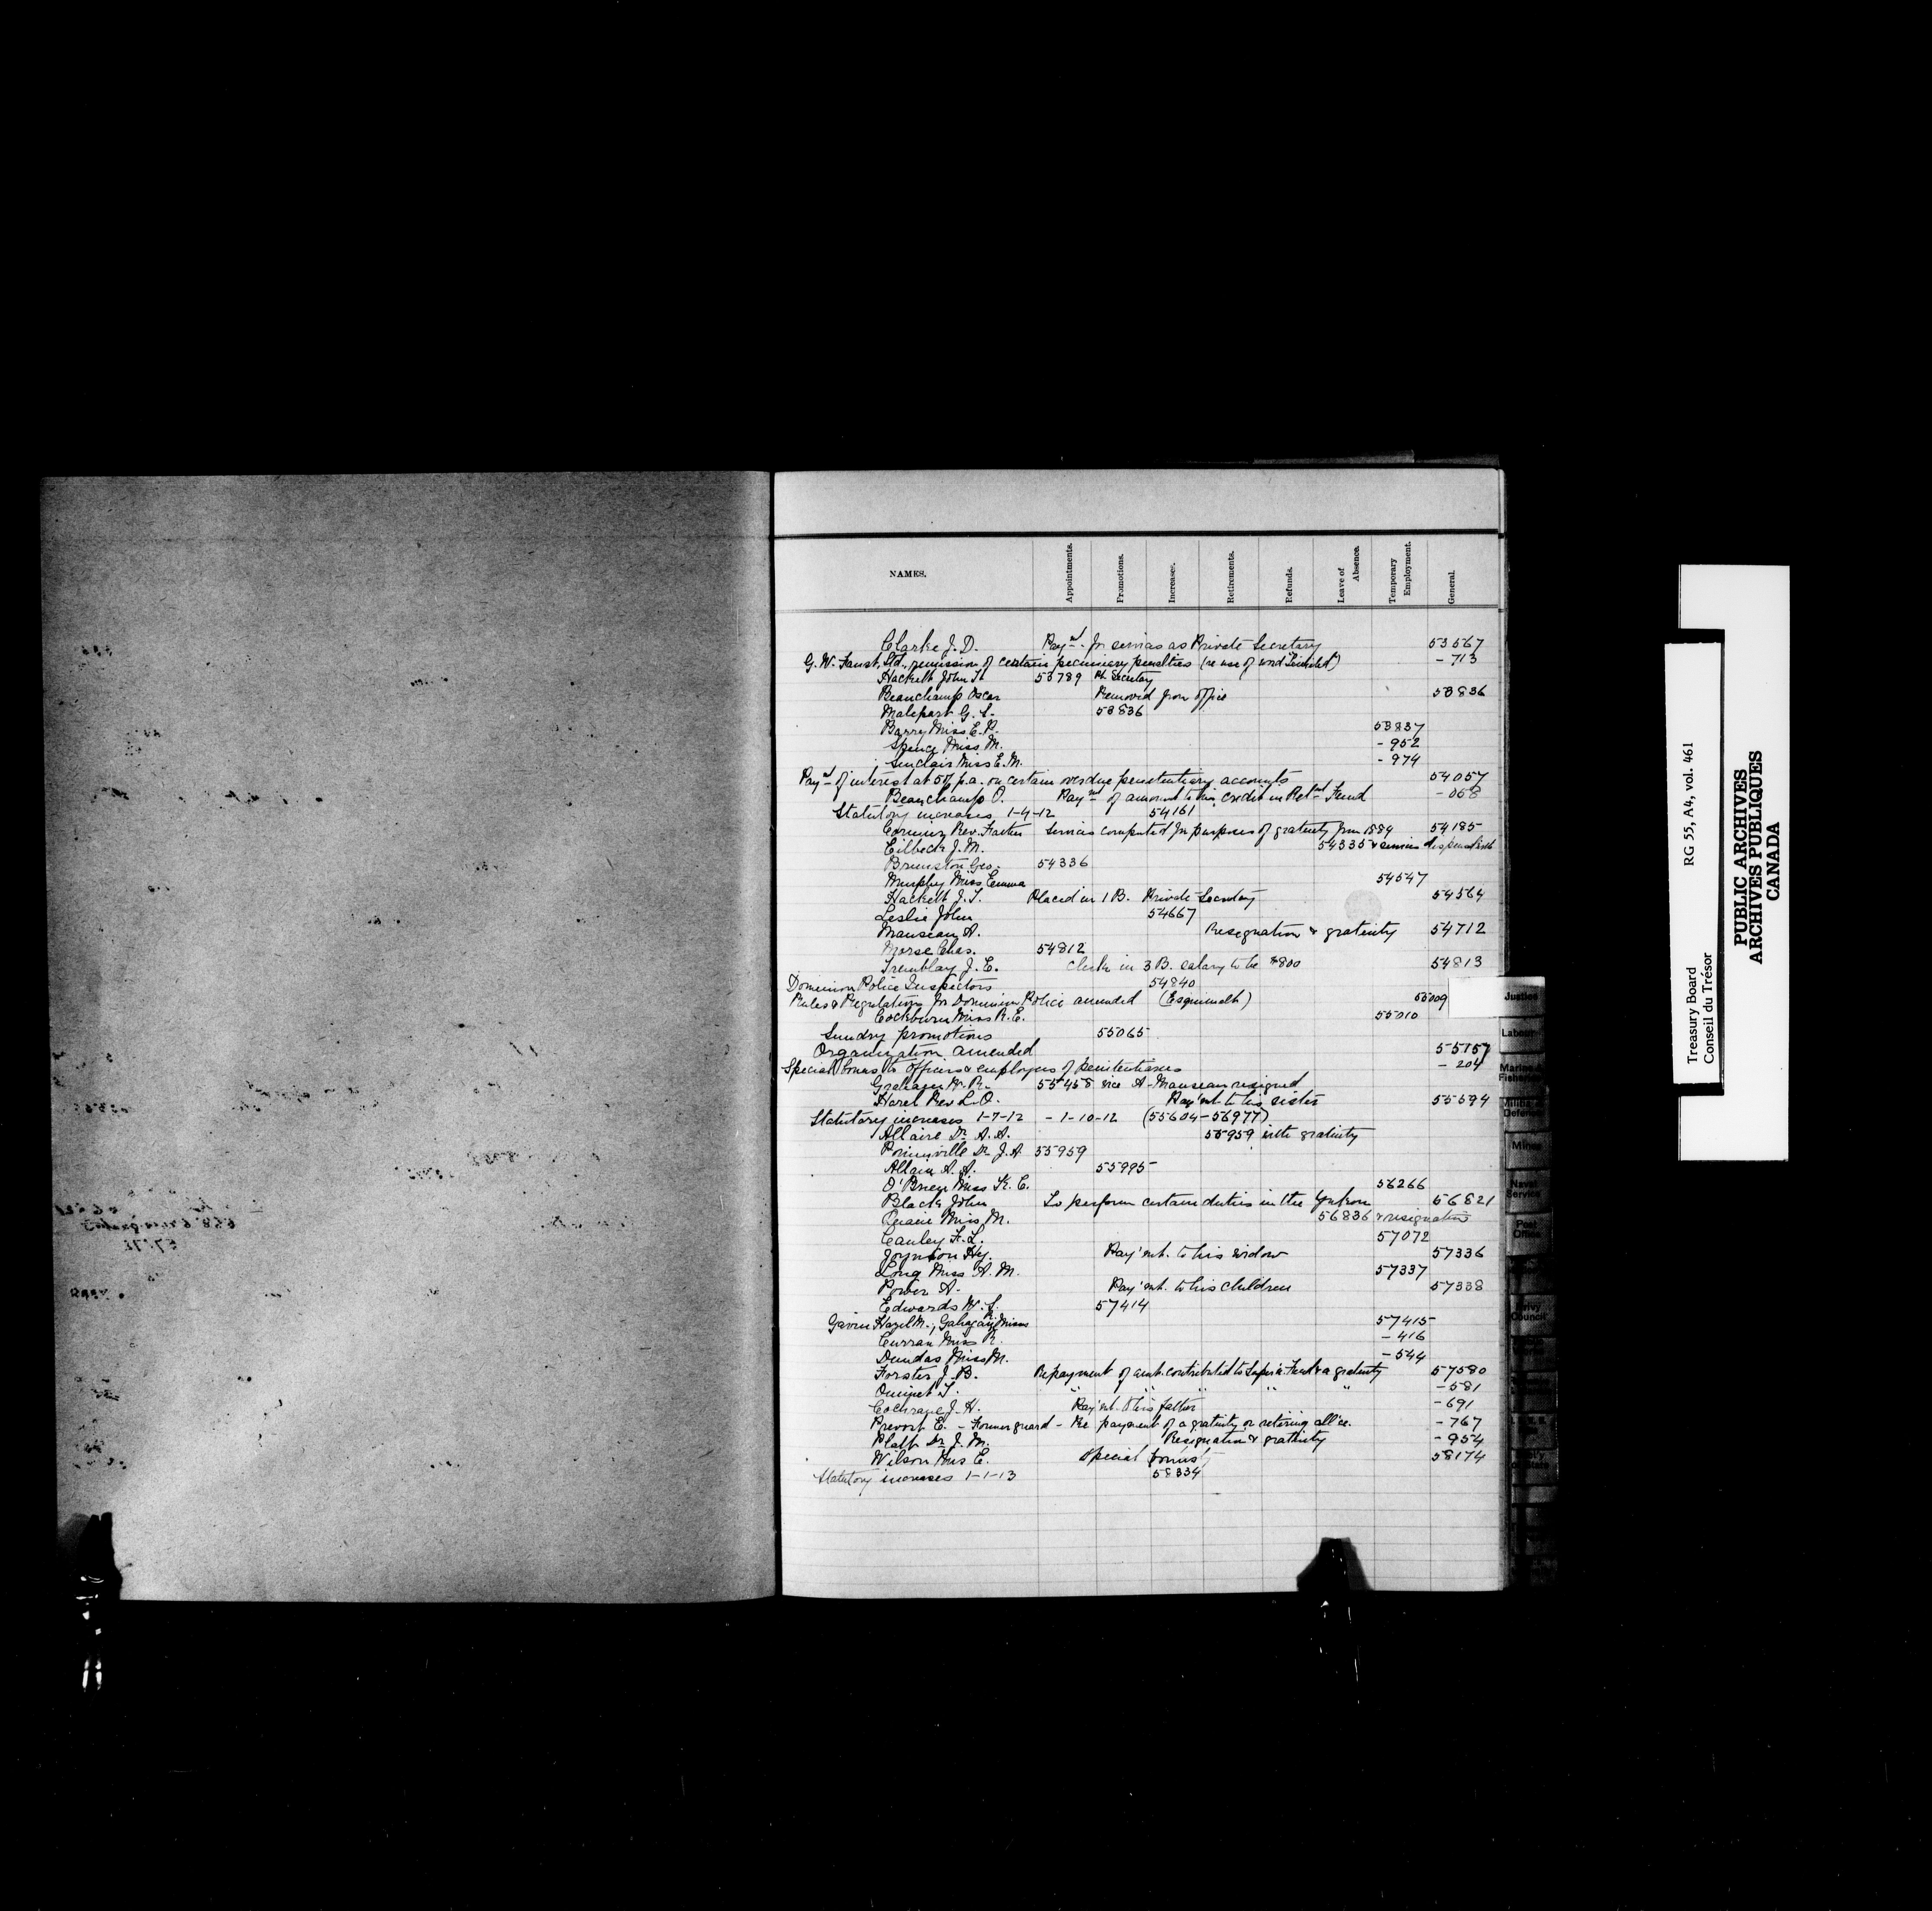 NAMES. Appointments. Promotions. Increases. Retirements. Refunds. Leave of Absence. Temporary Employment. General.
Clarke J. D. Paymt. for services as Private Secretary 53567
G. W. Faust, Ltd., remission of certain pecuniary penalties (re use of word "Limited") - 713
Hackett John T. 53789 Pt. Secretary
Beauchamp Oscar Removed from office 53836
Malepart G. S. 53836
Barry Miss E. P. 53837
Spence Miss M. - 952
Sinclair Miss E. M. - 974
Paymt of interest at 5% p.a. on certain overdue penitentiary accounts 54057
Beauchamp O. Paymt of amount to his credit in Retmt Fund - 058
Statutory increases 1-4-12 54161
Rev. Father Services computed for purposes of gratuity from 1884 54185
J. M. 54335 & services dispensed with
Geo. 54336
Murphy Miss Emma 54547
Hackett J. T. Placed in 1 B. Private Secretary 54564
Leslie John 54667
Manseau A. Resignation & gratuity 54712
Morse Chas. 54812
Tremblay J. E. Clerk in 3 B. salary to be $800 54813
Dominion Police Inspectors 54840
Rules & Regulations for Dominion Police amended (Esquimalt) 55009
Cockburn Miss R. E. 55010
Sundry promotions 55065
Organization amended 55157
Special bonus to officers & employees of penitentiaries - 204
Graham W. R. 55458 vice A. Manseau resigned
Harel Rev. L. O. Pay'mt. to his sister 55594
Statutory increases 1-7-12 - 1-10-12 (55604 - 56977)
Allaire Dr. A. A. 55959 with gratuity
Pominville Dr. J. A. 55959
Allain A. A. 55995
O'Brien Miss K. E. 56266
Black John To perform certain duties in the Yukon 56821
Quain Miss M. 56836 & resignation
Cauley F. L. 57072
Joynton Hy. Pay'mt. to his widow 57336
Long Miss A. M. 57337
Power A. Pay'mt. to his children 57338
Edwards W. S. 57414
Gavin Hazel M., Misses 57415
Curran Miss R. - 416
Dundas Miss M. - 544
Forster J. B. Repayment of amt. contributed to Super'n Fund & a gratuity 57580
Ouimet T. " " " " " - 581
Cochrane J. H. Pay'mt. to his father - 691
Prevost E. - Former guard - Re payment of a gratuity or retiring all'ce. - 767
Platt Dr. J. M. Resignation & gratuity - 954
Wilson Mrs E. Special bonus 58174
Statutory increases 1-1-13 58334
Justice
Labour
Marine & Fisheries
Militia & Defence
Mines
Naval Service
Post Office
Privy Council
Treasury Board RG 55, A4, vol. 461
Conseil du Trésor
PUBLIC ARCHIVES
ARCHIVES PUBLIQUES
CANADA